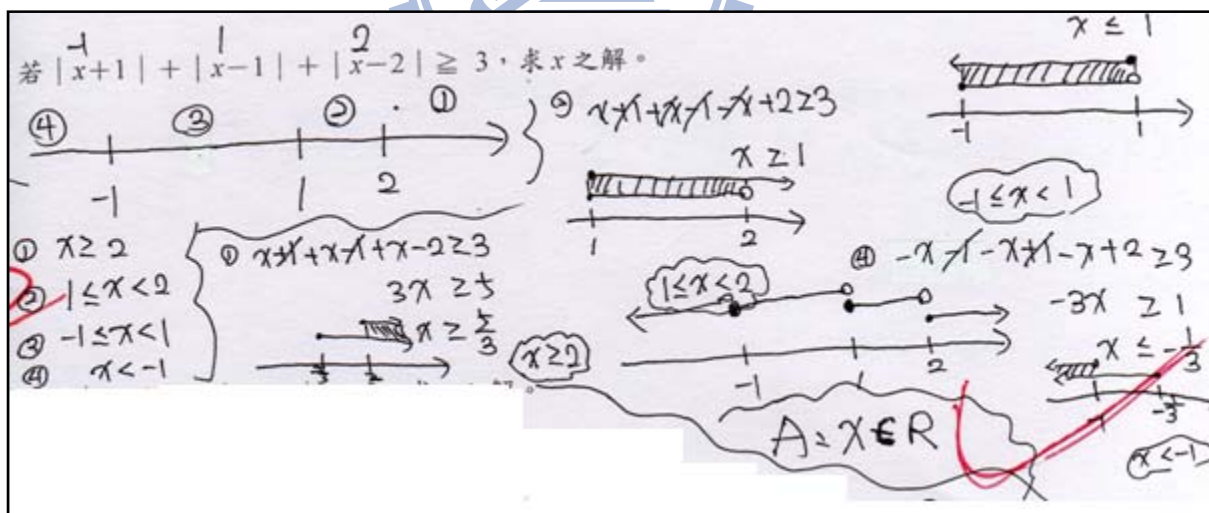 -1 1 2
若 | x+1 | + | x-1 | + | x-2 | ≧ 3,求 x 之解。
④ ③ ② ①
-1 1 2
① x≥2
② 1≤x<2
③ -1≤x<1
④ x<-1
① x+1+x-1+x-2≥3
3x ≥5
x ≥ 5/3
x≥2
② x+1+x-1-x+2≥3
x ≥ 1
1 2
1≤x<2
x ≤ 1
-1 1
-1≤x<1
④ -x-1-x+1-x+2≥3
-3x ≥ 1
x ≤ -1/3
-1 -1/3
x<-1
-1 1 2
A: x∈R